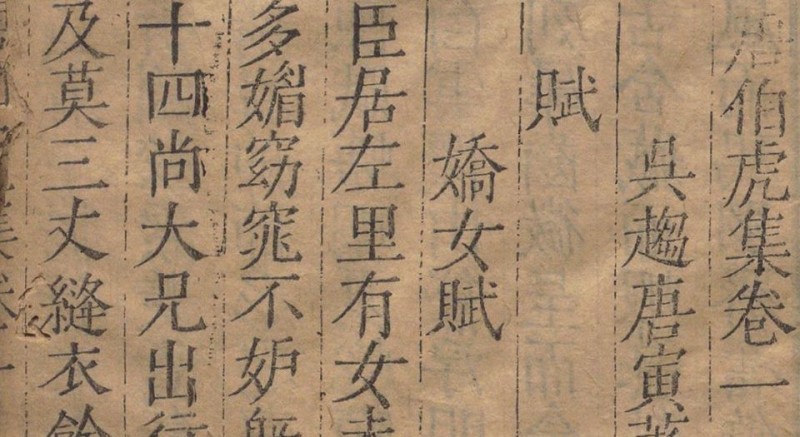 唐伯虎集卷一
吳趨唐寅著
賦
嬌女賦
臣居左里有女未
多媚窈窕不妒既
十四尚大兄出行
及莫三丈縫衣餘